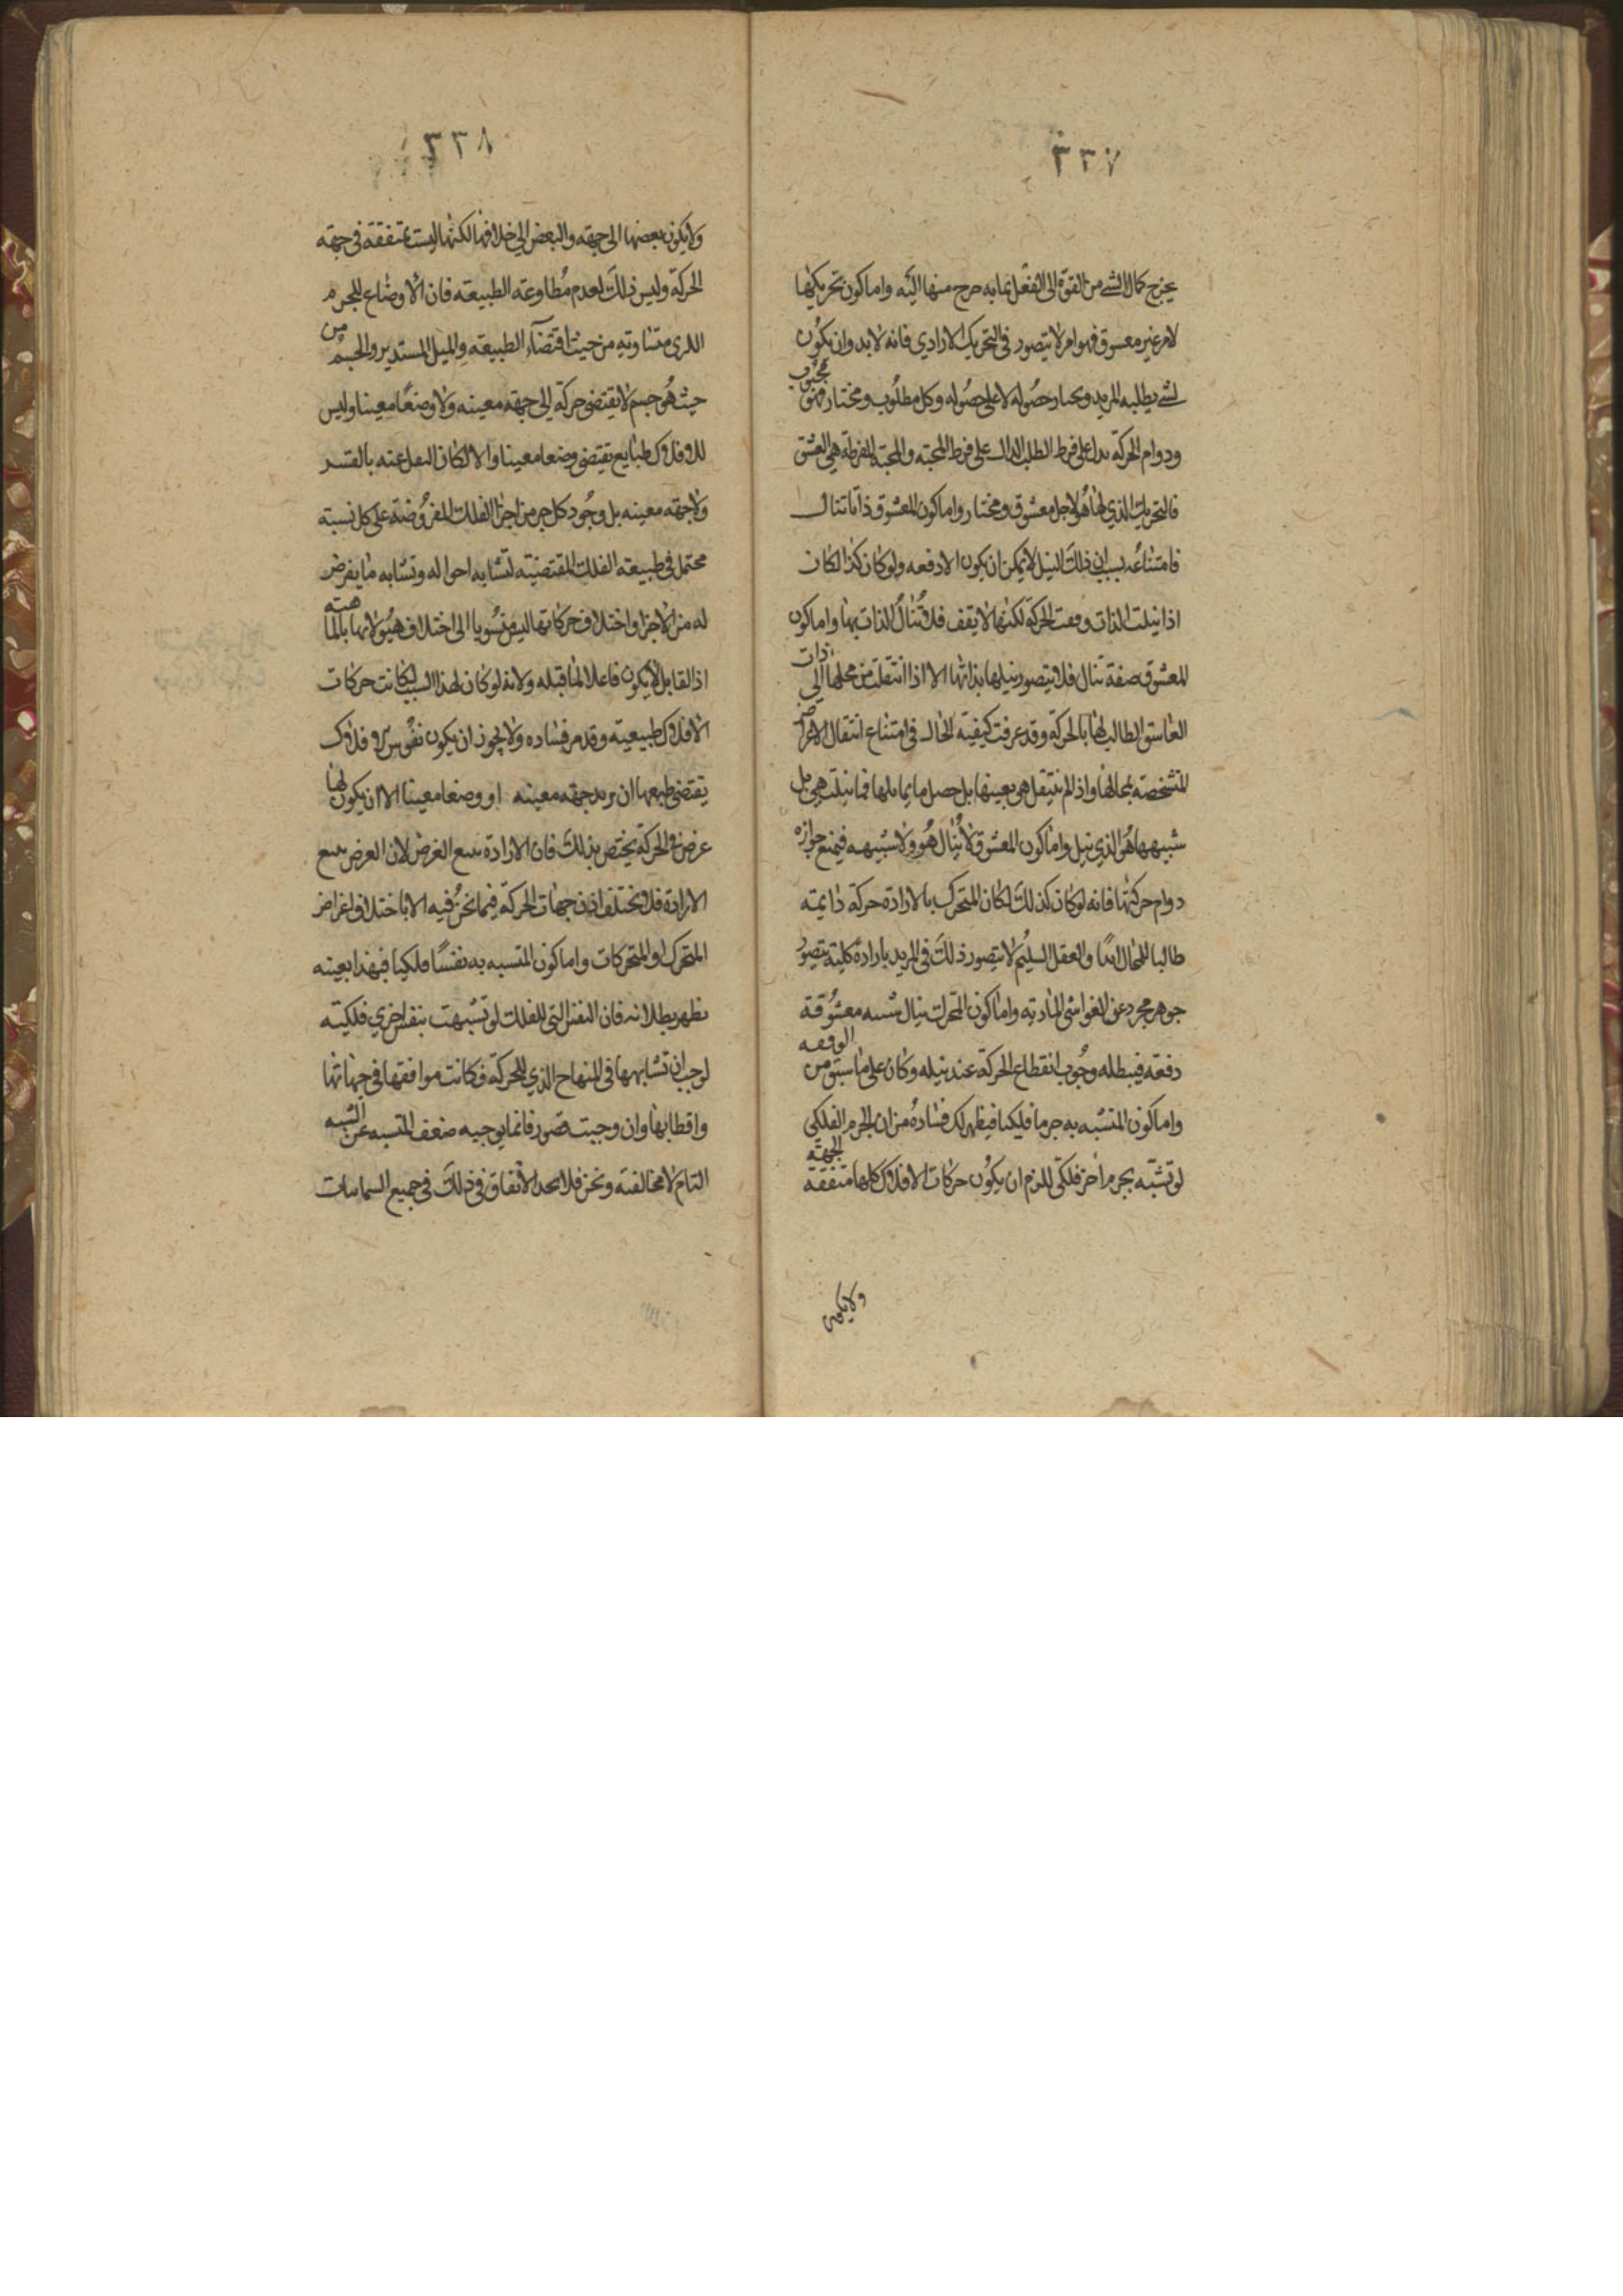 ٣٣٧
يخرج كمال الشي من القوة الى الفعل بما به خرج منها اليه واما كون تحريكها
لامر غير معسوق فهو امر لا يتصور في التحريك الارادي فانه لا بد وان يكون
لشي يطلبه المريد ويختار حصوله لا على حصوله وكل مطلوب ومختار فهو محبوب
ودوام الحركة يدل على فرط الطلب الدال على فرط المحبة والمحبة المفرطة هي العشق
فالتحريك الذي لها هو لاجل معشوق ومختار واما كون المعشوق ذاتا تنال
فامتناعه بسبب ان ذلك النيل لا يمكن ان يكون الا دفعه ولو كان كذا لكان
اذا نيلت الذات وقعت الحركة لكنها لا يقف فلا تنال الذات بها واما كون
المعشوق صفة تنال فلا يتصور نيلها بذاتها الا اذا انتقلت من محلها الى ذات
العاسق الطالب لها بالحركة وقد عرفت كيفية الحال في امتناع انتقال الاعراض
المتشخصة بمحالها واذ لم ينتقل هي بعينها بل حصل ما يماثلها فما نيلت هي بل
شبيهها هو الذي نيل واما كون المعشوق لا ينال هو ولا شبيهه فيمنع جوازه
دوام حركتها فانه لو كان كذلك لكان المتحرك بالارادة حركة دايمة
طالبا للمحال ابدا والعقل السليم لا يتصور ذلك في المريد بارادة كلية يتصور
جوهر مجرد عن الغواشي المادية واما كون المتحرك ينال شبه معشوقة
دفعة فيبطله وجوب انقطاع الحركة عند نيله وكان على ما سبق من الوقفه
واما كون المتشبه به جرما فلكيا فيظهر لك فساده من ان الجرم الفلكي
لو تشبه بجرم اخر فلكي للزم ان يكون حركات الافلاك كلها متفقة الجهة
ولا يكون
٣٣٨
ولا يكون بعضها الى جهة والبعض الى خلافها لكنها ليست بمتفقة في جهة
الحركة وليس ذلك لعدم مطاوعة الطبيعة فان الاوضاع للجرم
الكرى متساوية من حيث اقتضاء الطبيعة والميل المستدير والجسم من
حيث هو جسم لا يقتضي حركة الى جهة معينه ولا وضعا معينا وليس
للافلاك طبايع تقتضي وضعا معينا والا لكان النقل عنه بالقسر
ولا جهة معينه بل وجود كل جزء من اجزا الفلك المفروضة على كل نسبة
محتمل في طبيعة الفلك المقتضية لتشابه احواله وتشابه ما يفرض
له من الاجزا واختلاف حركاتها ليس منسوبا الى اختلاف هيولاتها بالماهية
اذ القابل لا يكون فاعلا لما قبله ولانه لو كان لهذا السبب لكانت حركات
الافلاك طبيعية وقد مر فساده ولا يجوز ان يكون نفوس الافلاك
يقتضي طبعها ان يريد جهة معينه او وضعا معينا الا ان يكون لها
غرض في الحركة يختص بذلك فان الارادة تتبع الغرض لان الغرض يتبع
الارادة فلا يختلف اذن جهات الحركة فيما نحن فيه الا باختلاف اغراض
المتحرك او المتحركات واما كون المتسبه به نفسا فلكيا فبهذا بعينه
يظهر بطلانه فان النفس التي للفلك لو تشبهت بنفس اخرى فلكية
لوجب ان تشابهها في المنهاج الذي للحركة فكانت موافقتها في جهاتها
واقطابها وان وجبت قصور فانما يوجبه ضعف المتسبه عن التشبه
التام لا مخالفته ونحن فلا نجد الاتفاق في ذلك في جميع السماويات